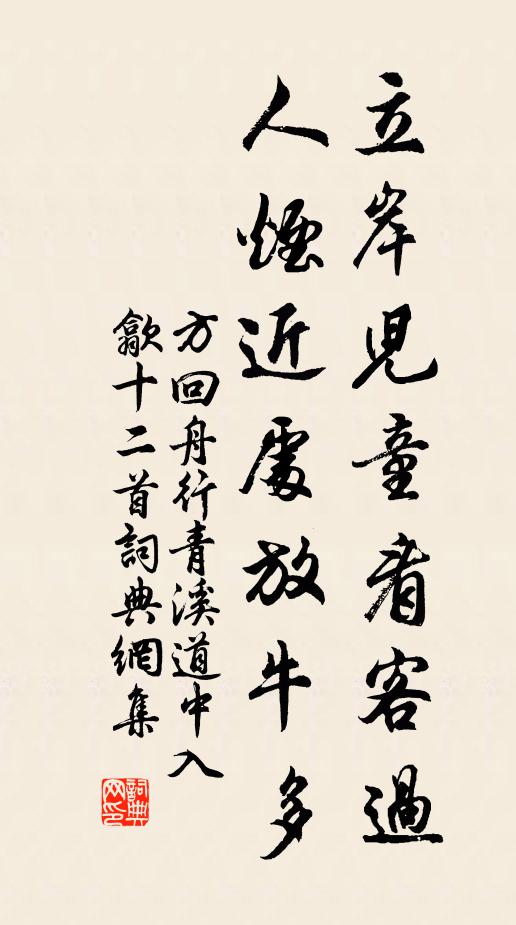 立岸児童看客過
人煙近處放牛多
方回舟行青溪道中入
歙十二首詞典網集
詞典网印